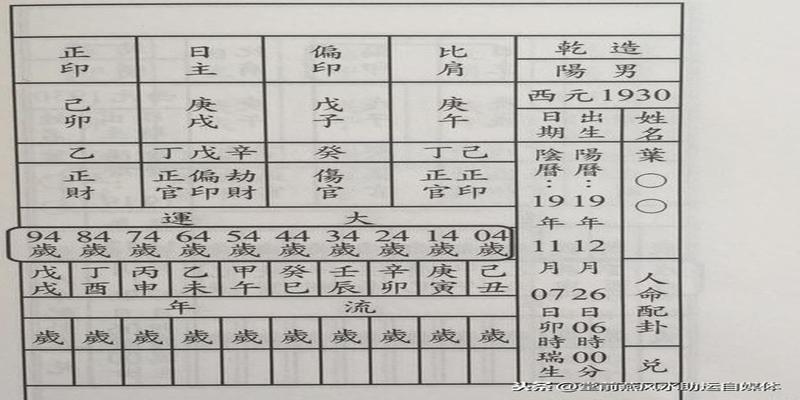 乾造
陽男
西元1930
姓名 葉○○
人命配卦 兌
出生日期
陽曆：19年12月26日06時00分
陰曆：19年11月07日卯時瑞生
正印 日主 偏印 比肩
己卯 庚戌 戊子 庚午
乙 丁戊辛 癸 丁己
正財 正官偏印劫財 傷官 正官正印
運大
94歲 84歲 74歲 64歲 54歲 44歲 34歲 24歲 14歲 04歲
戊戌 丁酉 丙申 乙未 甲午 癸巳 壬辰 辛卯 庚寅 己丑
年流
歲 歲 歲 歲 歲 歲 歲 歲 歲 歲
头条 @堂前燕风水助运自媒体